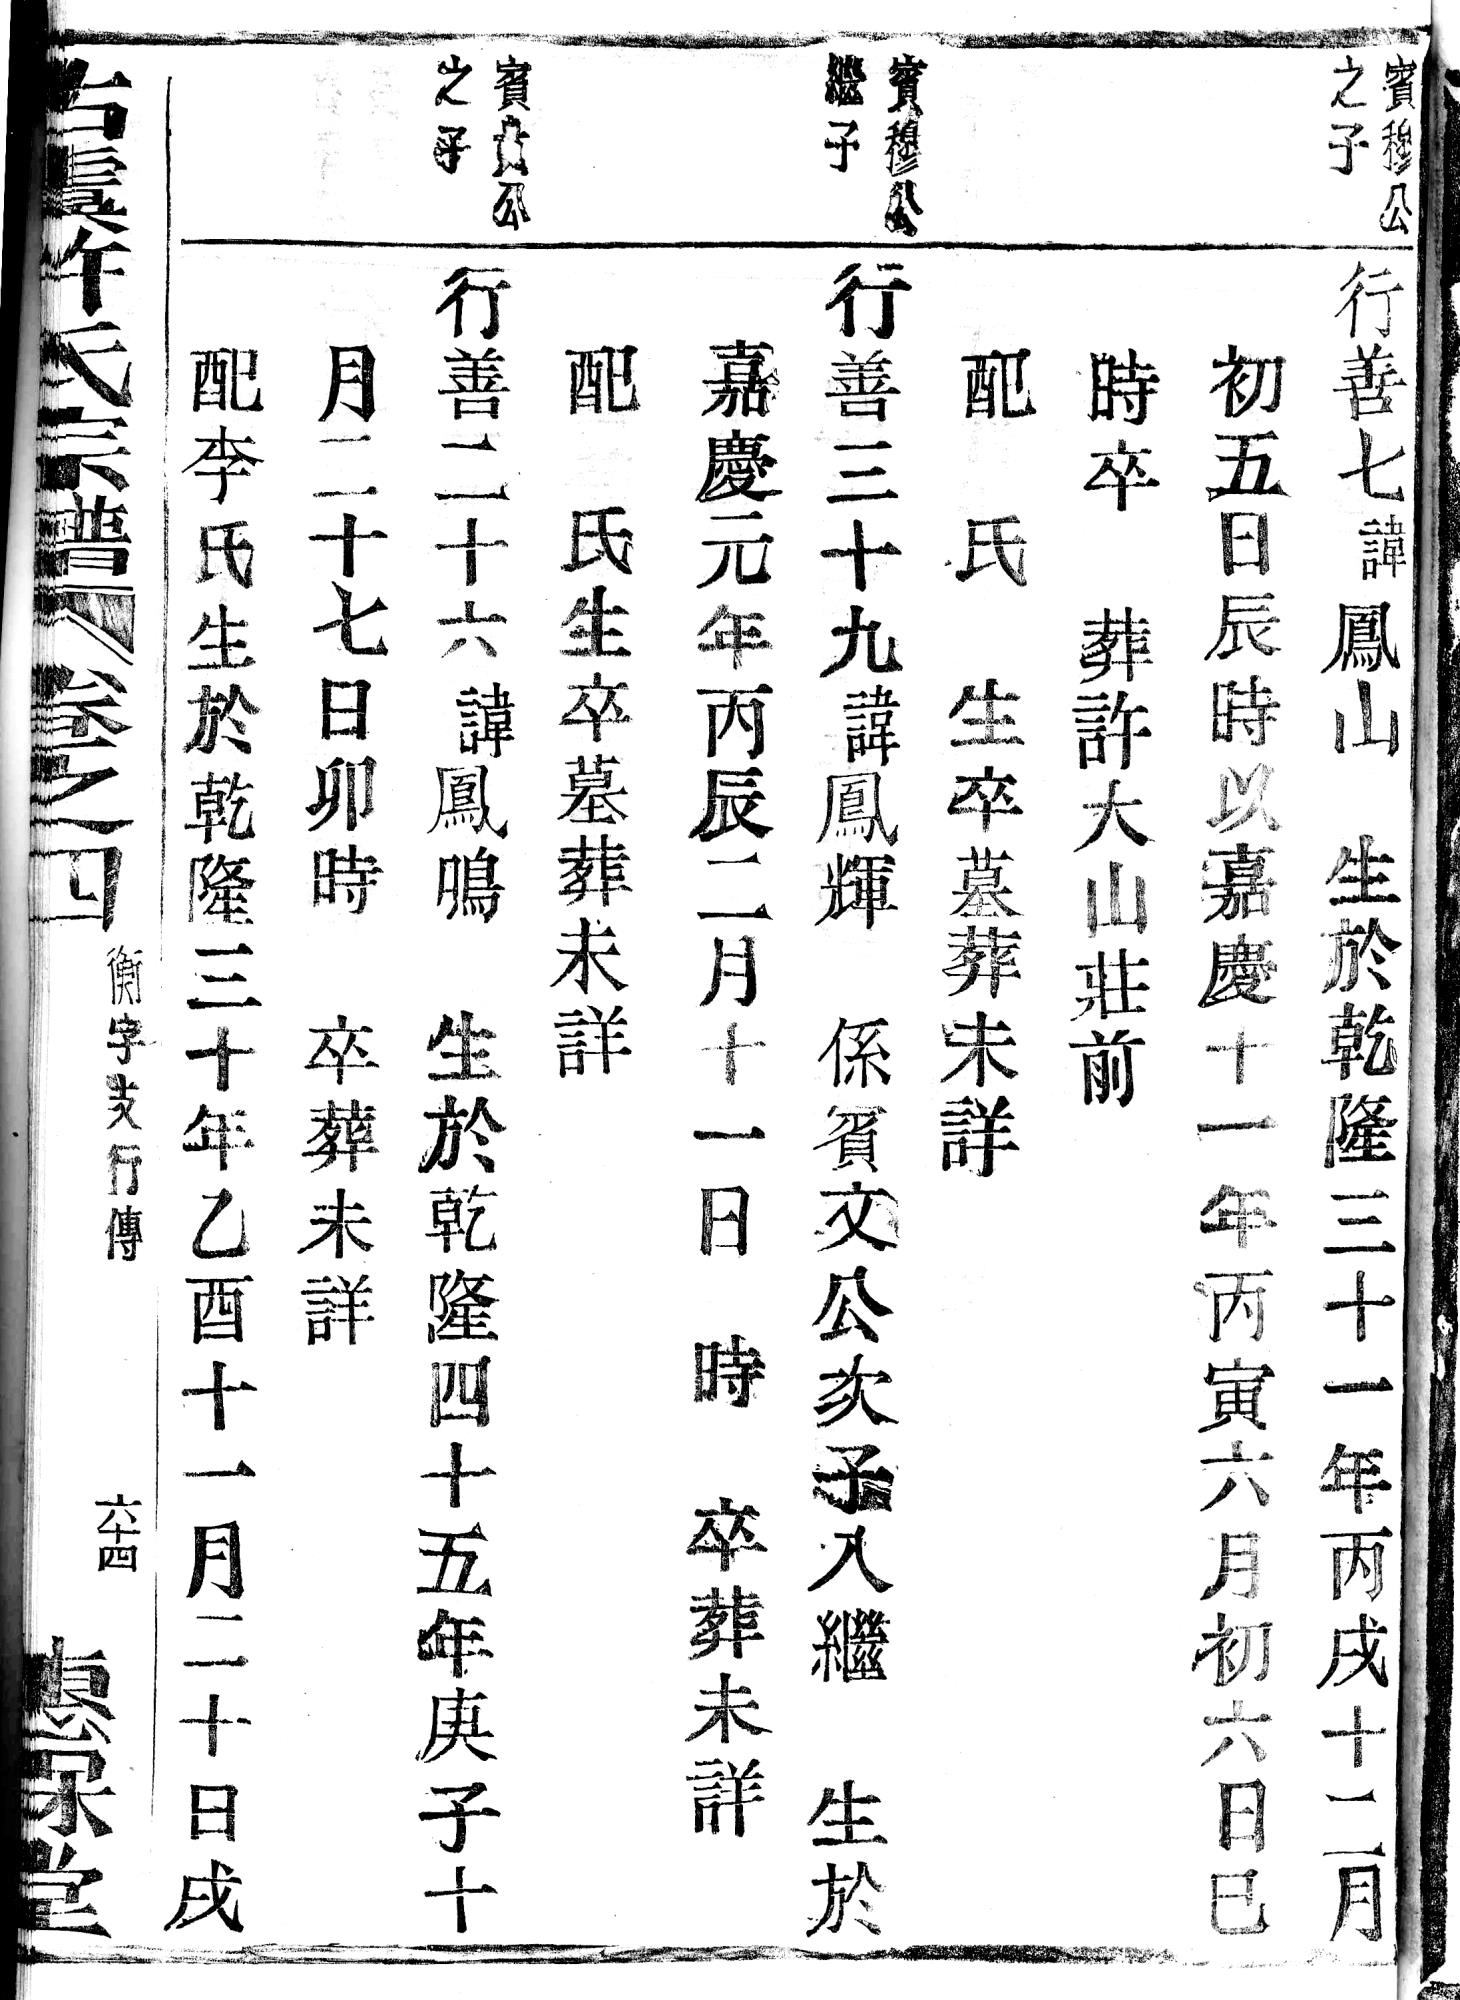 賓穆公
之子
行善七諱鳳山　生於乾隆三十一年丙戌十二月
初五日辰時以嘉慶十一年丙寅六月初六日巳
時卒　葬許大山莊前
配　氏　生卒墓葬未詳
賓穆公
繼子
行善三十九諱鳳輝　係賓文公次子入繼　生於
嘉慶元年丙辰二月十一日　時　卒葬未詳
配　氏生卒墓葬未詳
賓文公
之子
行善二十六諱鳳鳴　生於乾隆四十五年庚子十
月二十七日卯時　卒葬未詳
配李氏生於乾隆三十年乙酉十一月二十日戌
古虞許氏宗譜　卷之四　衡字支行傳　六十四　惠宗堂